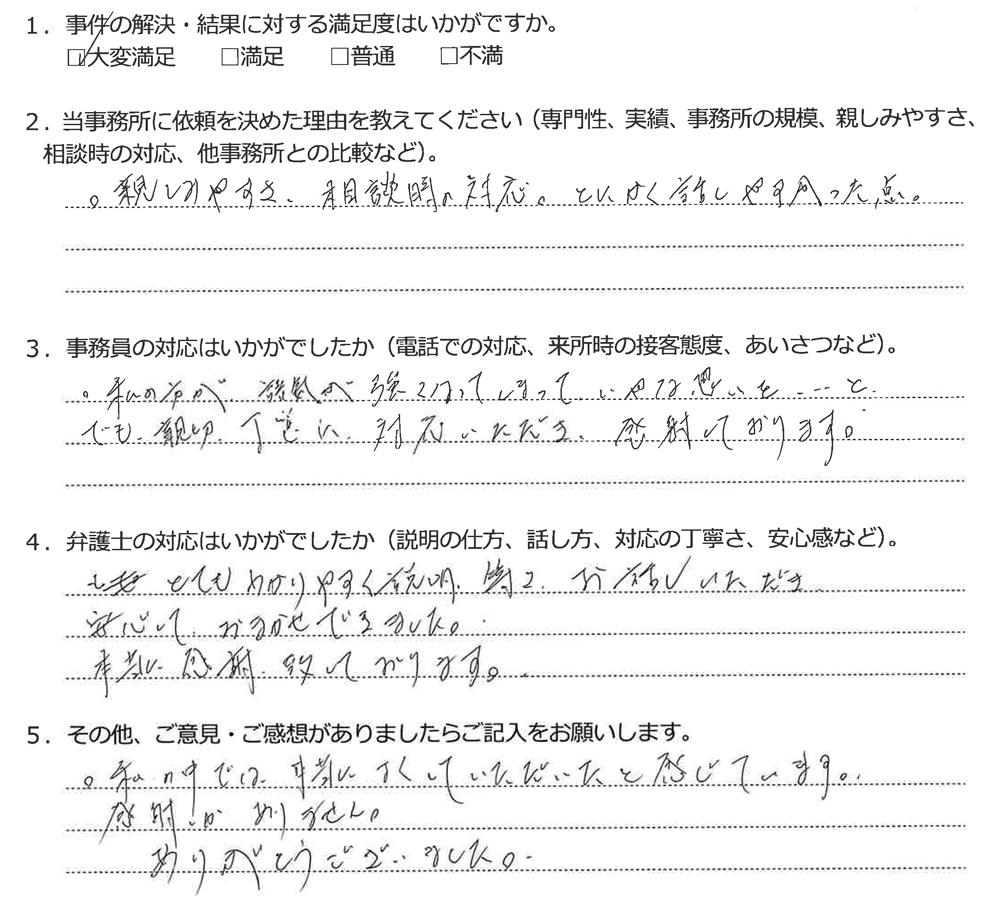 1．事件の解決・結果に対する満足度はいかがですか。
☑大変満足　□満足　□普通　□不満
2．当事務所に依頼を決めた理由を教えてください（専門性、実績、事務所の規模、親しみやすさ、
相談時の対応、他事務所との比較など）。
。親しみやすさ、相談時の対応。とにかく話しやすかった点。
3．事務員の対応はいかがでしたか（電話での対応、来所時の接客態度、あいさつなど）。
。私の方が、語気が強くなってしまっていやな思いを…と
でも、親切、丁寧に、対応いただき、感謝しております。
4．弁護士の対応はいかがでしたか（説明の仕方、話し方、対応の丁寧さ、安心感など）。
とてもわかりやすく説明、お話しいただき
安心して、おまかせできました。
本当に感謝致しております。
5．その他、ご意見・ご感想がありましたらご記入をお願いします。
。私の中では、本当によくしていただいたと感じています。
感謝しかありません。
ありがとうございました。